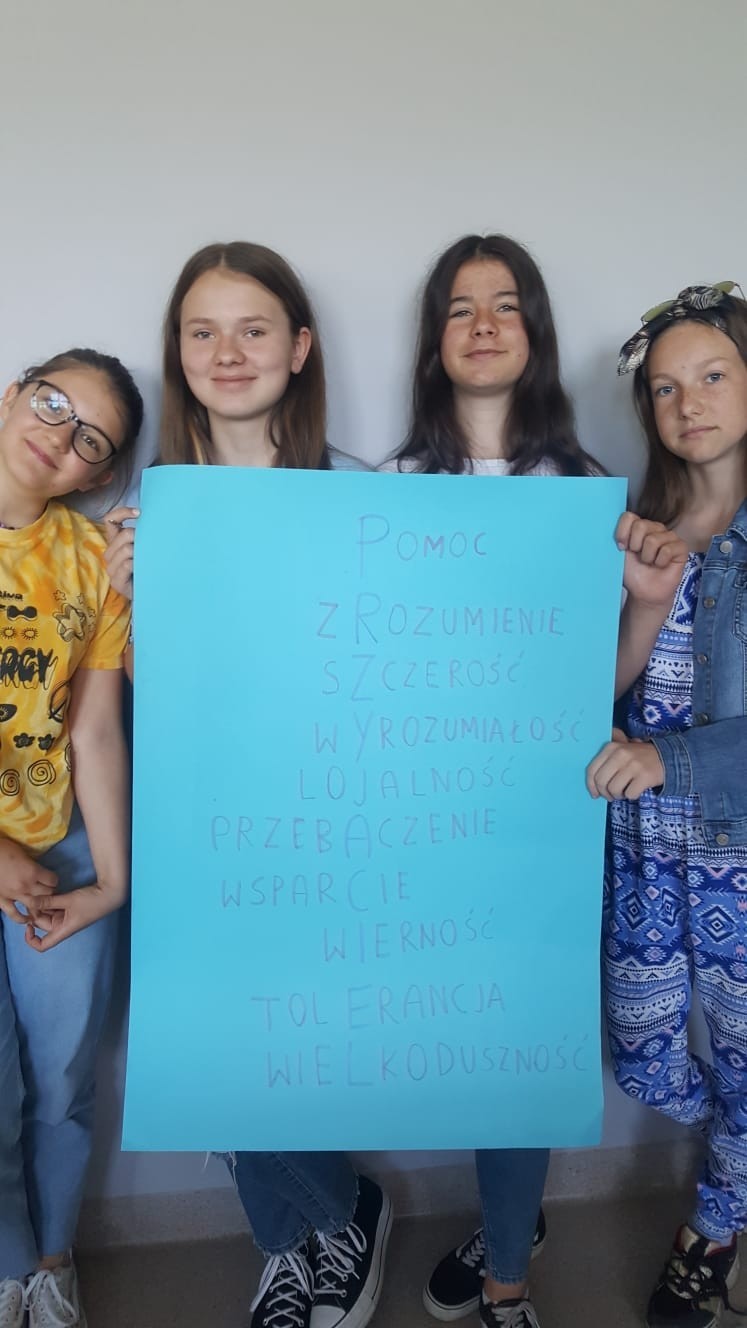 POMOC
ZROZUMIENIE
SZCZEROŚĆ
WYROZUMIAŁOŚĆ
LOJALNOŚĆ
PRZEBACZENIE
WSPARCIE
WIERNOŚĆ
TOLERANCJA
WIELKODUSZNOŚĆ